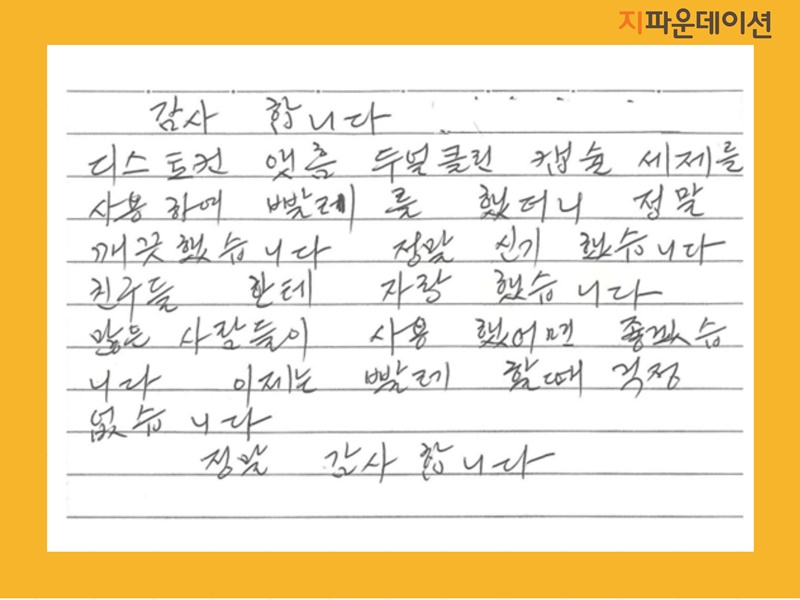 지파운데이션
감사 합니다
디스토컨 앳홈 듀얼클린 캡슐 세제를
사용하여 빨레를 했더니 정말
깨끗했습니다 정말 신기 했습니다
친구들 한테 자랑 했습니다
많은 사람들이 사용 했어면 좋겠습
니다 이제는 빨레 할때 걱정
없습니다
정말 감사 합니다